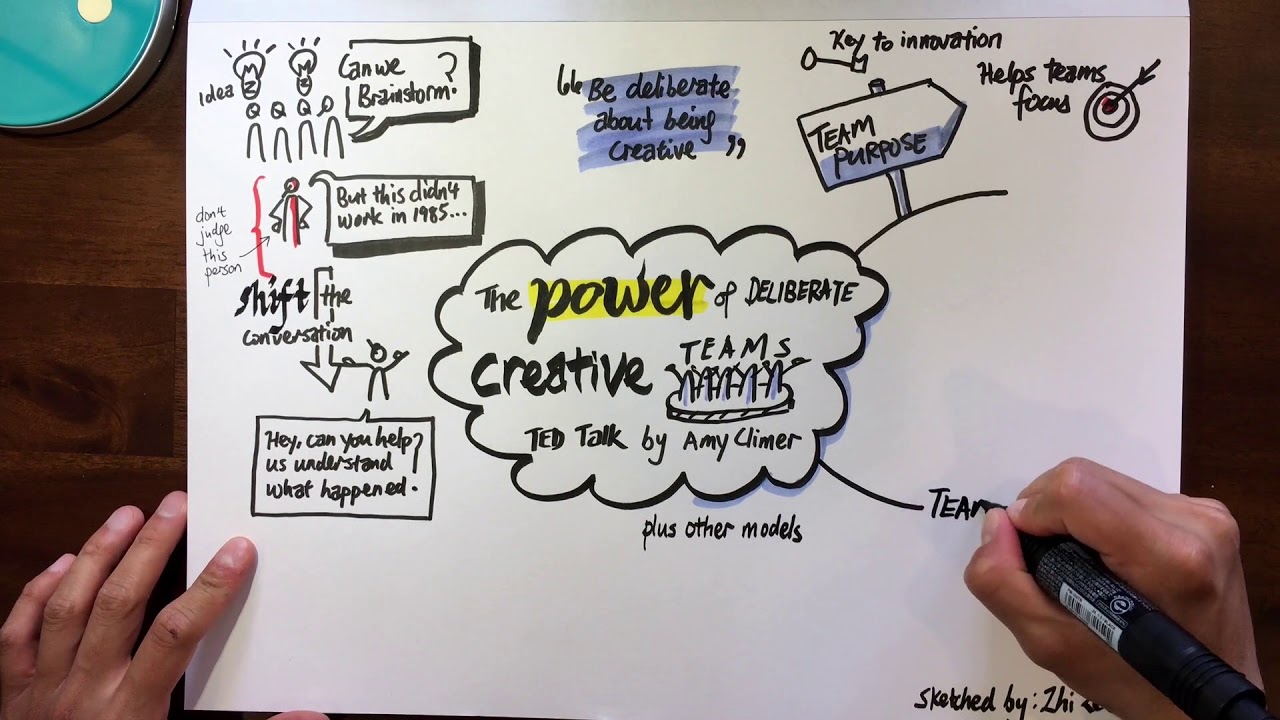 Idea
Can we
Brainstorm?
don't
judge
this
person
But this didn't
work in 1985...
shift the
conversation
Hey, can you help
us understand
what happened?
“Be deliberate
about being
creative”
Key to innovation
Helps teams
focus
TEAM
PURPOSE
The power of DELIBERATE
creative TEAMS
TED Talk by Amy Climer
plus other models
TEAM
sketched by: Zhi